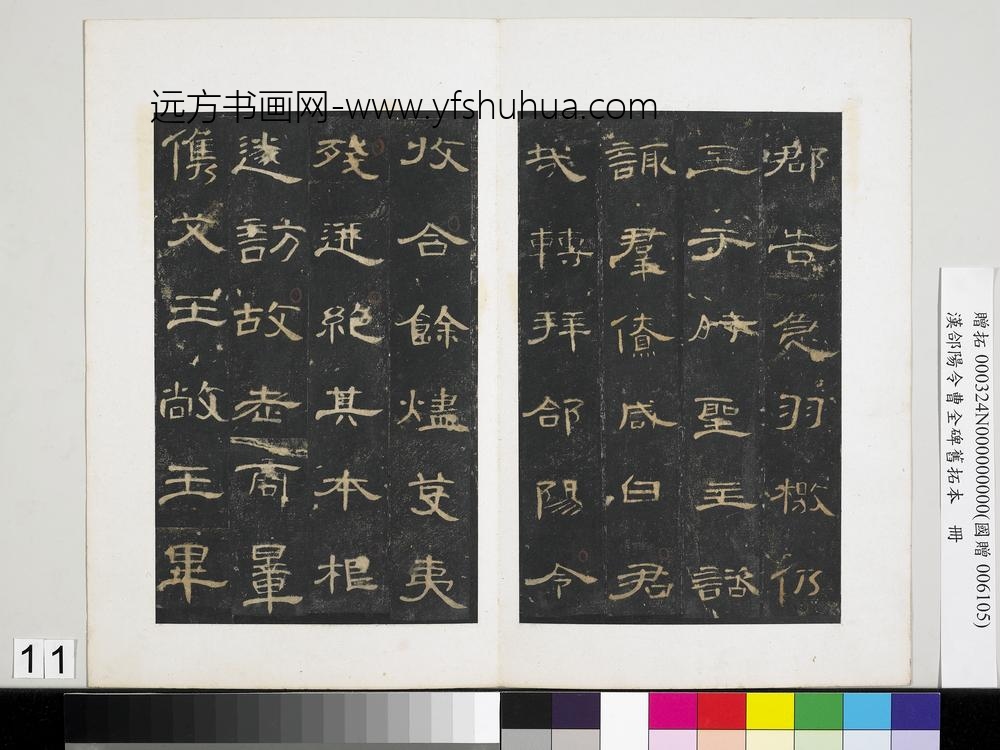 远方书画网-www.yfshuhua.com
郡告急羽檄仍
至于時聖主諮
諏羣僚咸曰君
哉轉拜郃陽令
收合餘燼芟夷
殘迸絕其本根
遂訪故老商量
儁艾王敞王畢
贈拓 000324N000000000(國贈 006105)
漢郃陽令曹全碑舊拓本 冊
11